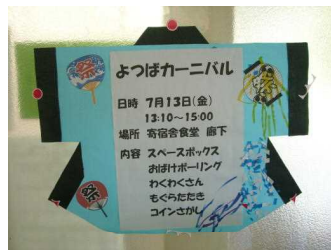 よつばカーニバル
日時 7月13日(金)
13:10～15:00
場所 寄宿舎食堂 廊下
内容 スペースボックス
おばけボーリング
わくわくさん
もぐらたたき
コインさがし
祭
祭
祭